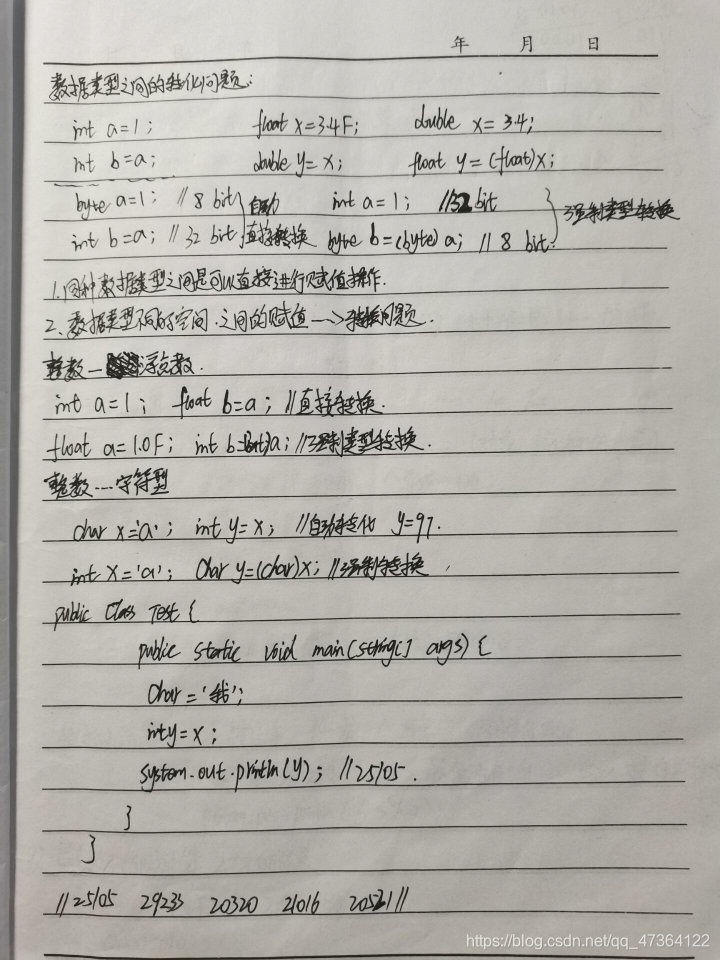 年 月 日
数据类型之间的转化问题:
int a=1; float x=3.4F; double x=3.4;
int b=a; double y=x; float y=(float)x;
byte a=1; //8 bit 自动 int a=1; //32 bit 强制类型转换
int b=a; //32 bit 直接转换 byte b=(byte)a; //8 bit
1.同种数据类型之间是可以直接进行赋值操作.
2、数据类型不同的空间.之间的赋值--->转换问题.
整数—浮点数.
int a=1; float b=a; //直接转换.
float a=1.0F; int b=(int)a; //强制类型转换.
整数...字符型
char x='a'; int y=x; //自动转化 y=97.
int x='a'; Char y=(char)x; //强制转换
public Class Test {
public static void main(string[] args) {
Char='我';
int y=x;
system.out.println(y); //25105.
}
}
//25105 29233 20320 21016 20521//
https://blog.csdn.net/qq_47364122